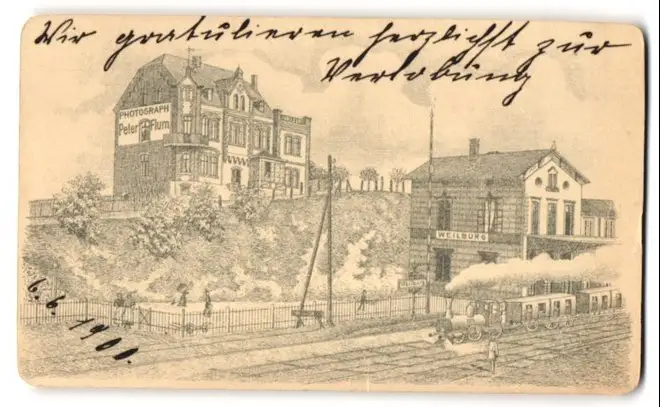 Wir gratulieren herzlichst zur
Verlobung
PHOTOGRAPH
Peter Flum
WEILBURG
6.6.1900.